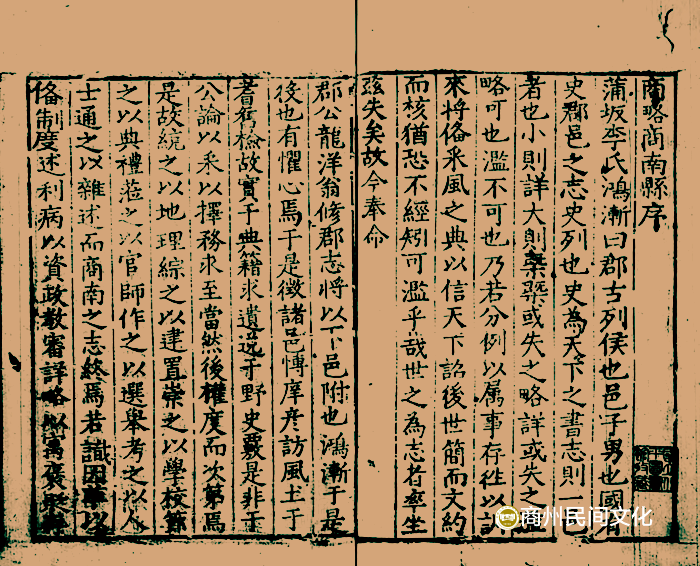 商略商南縣序
蒲坂李氏鴻漸曰郡古列侯也邑子男也國有
史郡邑之志史列也史為天下之書志則一
者也小則詳大則槩槩或失之略詳或失之
略可也濫不可也乃若分例以属事存往以訓
來將俻采風之典以信天下詔後世簡而文約
而核猶恐不經矧可濫乎哉世之為志者率坐
兹失矣故今奉命
郡公龍洋翁修郡志將以下邑附也鴻漸于是
役也有懼心焉于是徴諸邑博庠彥訪風土于
耆舊檢故實于典籍求遺逸于野史覈是非于
公論以釆以擇務求至當然後權度而次第焉
是故統之以地理綜之以建置崇之以學校
之以典禮蒞之以官師作之以選舉考之以人
士通之以雜述而商南之志終焉若識因革以
俻制度述利病以資政教審詳略以寓褒
商州民间文化